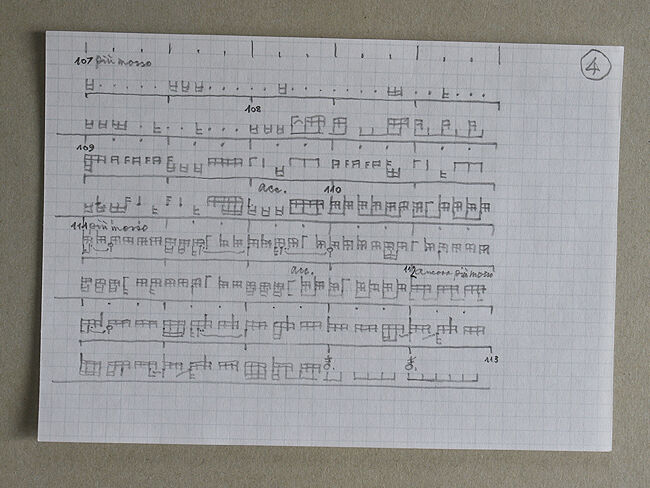 4
107 più mosso
108
109
acc. 110
111 più mosso
acc. 112 ancora più mosso
113